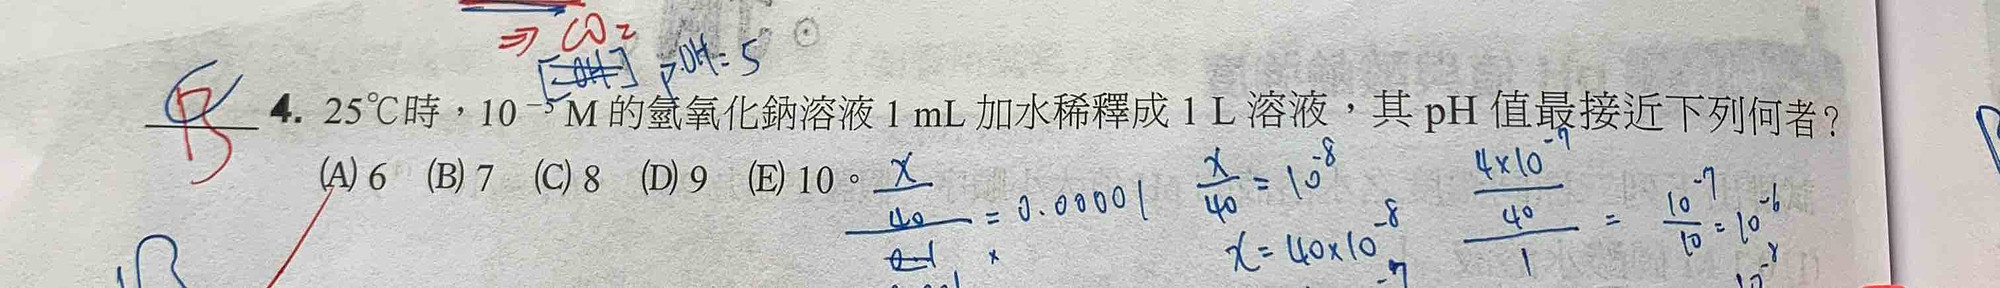 ⇒ CO₂
[OH⁻] pOH = 5
B 4. 25℃時，10⁻⁵ M 的氫氧化鈉溶液 1 mL 加水稀釋成 1 L 溶液，其 pH 值最接近下列何者？
(A) 6 (B) 7 (C) 8 (D) 9 (E) 10。
x/40 = 0.00001
x/40 = 10⁻⁸
x = 40×10⁻⁸
4×10⁻⁷/40/1 = 10⁻⁷/10 = 10⁻⁶
10⁻⁸